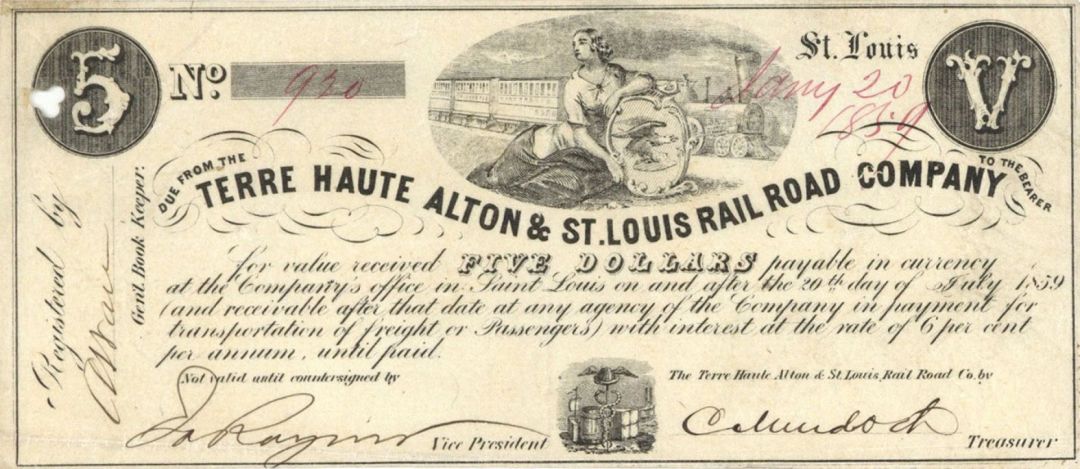 5
No. 920
St. Louis
Jany 20
1859
V
DUE FROM THE
TERRE HAUTE ALTON & ST. LOUIS RAIL ROAD COMPANY
TO THE BEARER
For value received FIVE DOLLARS payable in currency
at the Company's office in Saint Louis on and after the 20th day of July 1859
(and receivable after that date at any agency of the Company in payment for
transportation of freight or Passengers) with interest at the rate of 6 per cent
per annum, until paid.
Registered by
Genl. Book Keeper.
Not valid until countersigned by
Vice President
The Terre Haute Alton & St. Louis Rail Road Co. by
C Murdoch
Treasurer